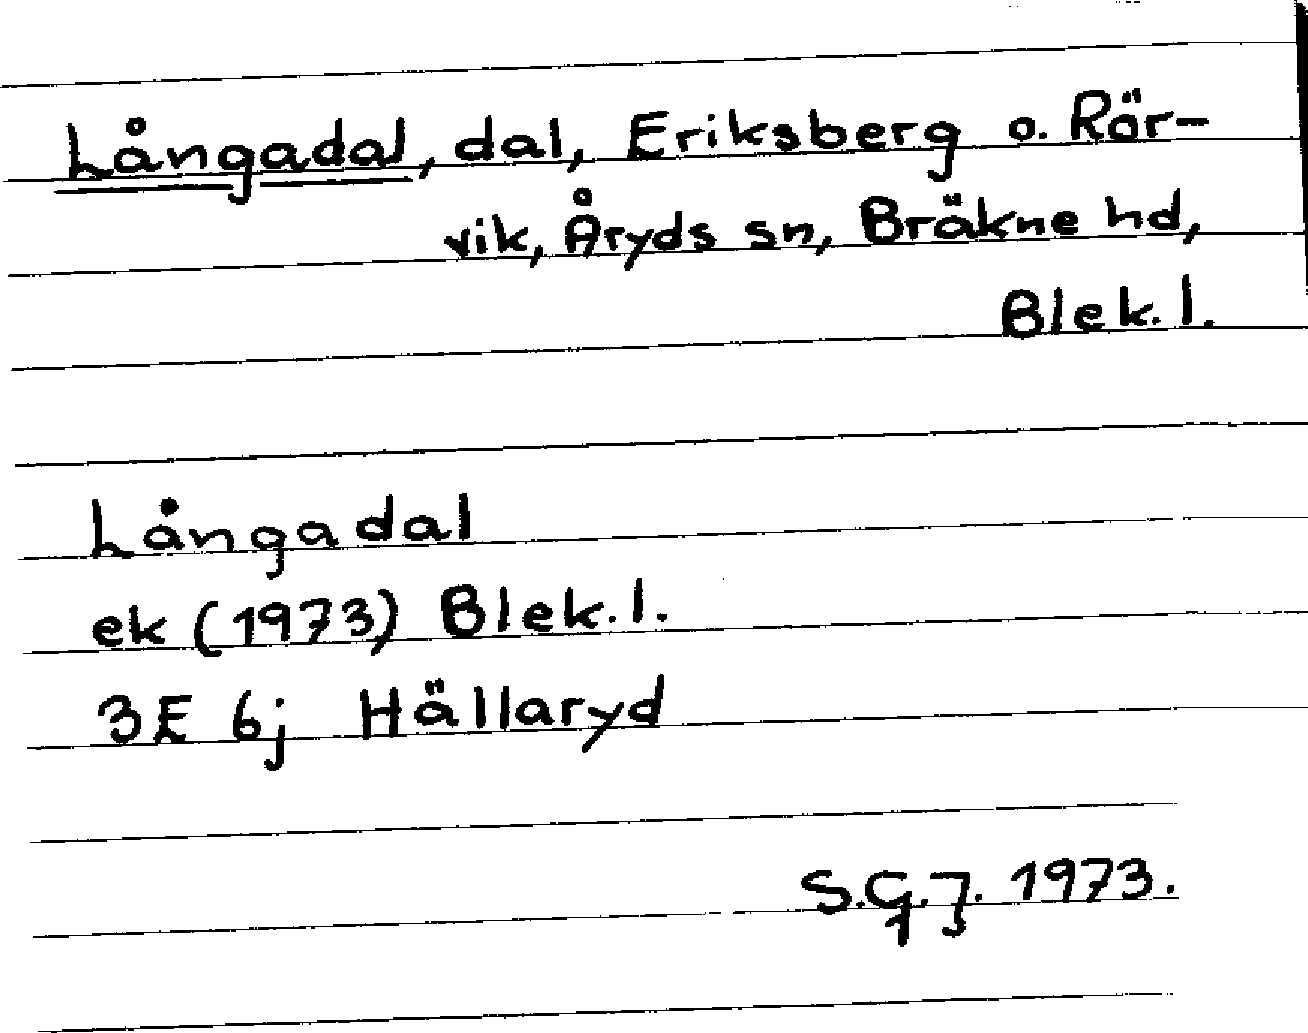 Långadal, dal, Eriksberg o. Rör-
vik, Åryds sn, Bräkne hd,
Blek. l.
Långadal
ek (1973) Blek. l.
3E 6j Hällaryd
S.G.J. 1973.